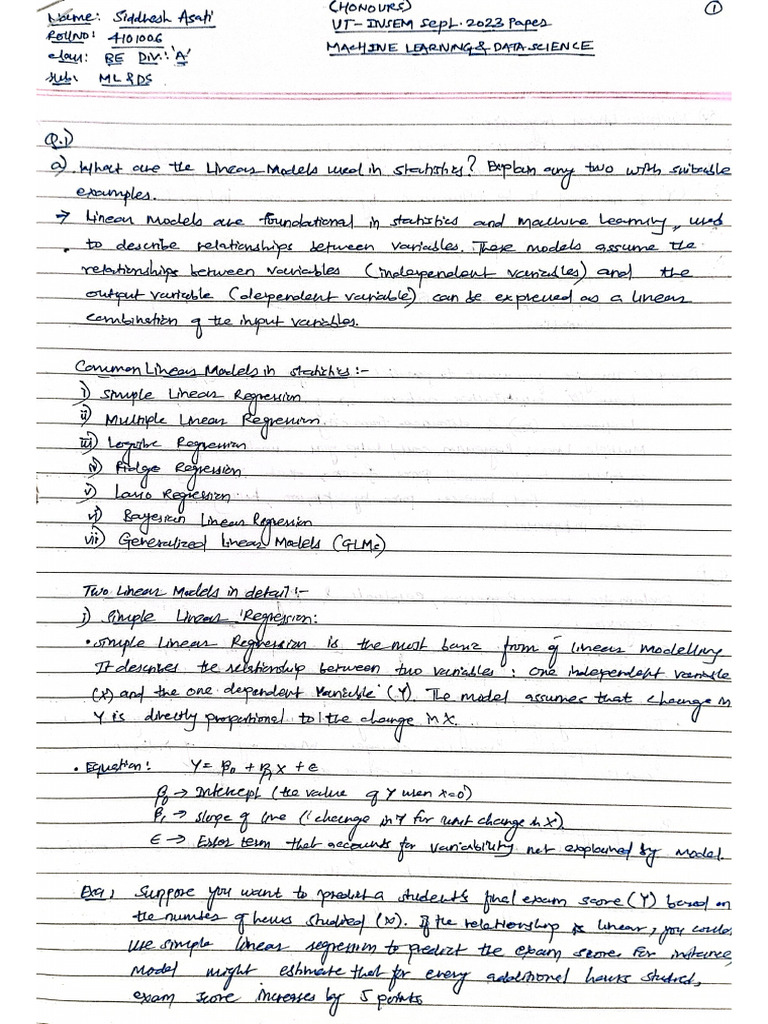 Name: Siddhesh Asati
(HONOURS)
1
Roll NO: 4101006
UT-INSEM Sept. 2023 Paper
Class: BE Div: 'A'
MACHINE LEARNING & DATA SCIENCE
Sub: ML & DS
Q.1)
a) What are the Linear Models used in statistics? Explain any two with suitable
examples.
→ Linear Models are foundational in statistics and machine learning, used
to describe relationships between variables. These models assume the
relationships between variables (independent variables) and the
output variable (dependent variable) can be expressed as a linear
combination of the input variables.
Common Linear Models in statistics :-
i) Simple Linear Regression
ii) Multiple Linear Regression
iii) Logistic Regression
iv) Ridge Regression
v) Lasso Regression
vi) Bayesian Linear Regression
vii) Generalized Linear Models (GLMs)
Two Linear Models in detail :-
i) Simple Linear Regression:
• Simple Linear Regression is the most basic from of linear modelling
It describes the relationship between two variables : one independent variable
(X) and the one dependent variable (Y). The model assumes that change in
Y is directly proportional to the change in X.
• Equation: Y = β₀ + β₁X + ϵ
β₀ → Intercept (the value of Y when x=0)
β₁ → slope of line (change in Y for unit change in X).
ϵ → Error term that accounts for variability not explained by model.
Exa, Suppose you want to predict a student's final exam score (Y) based on
the number of hours studied (X). If the relationship is linear, you could
use simple linear regression to predict the exam score. For instance,
model might estimate that for every additional hours studied,
exam score increases by 5 points